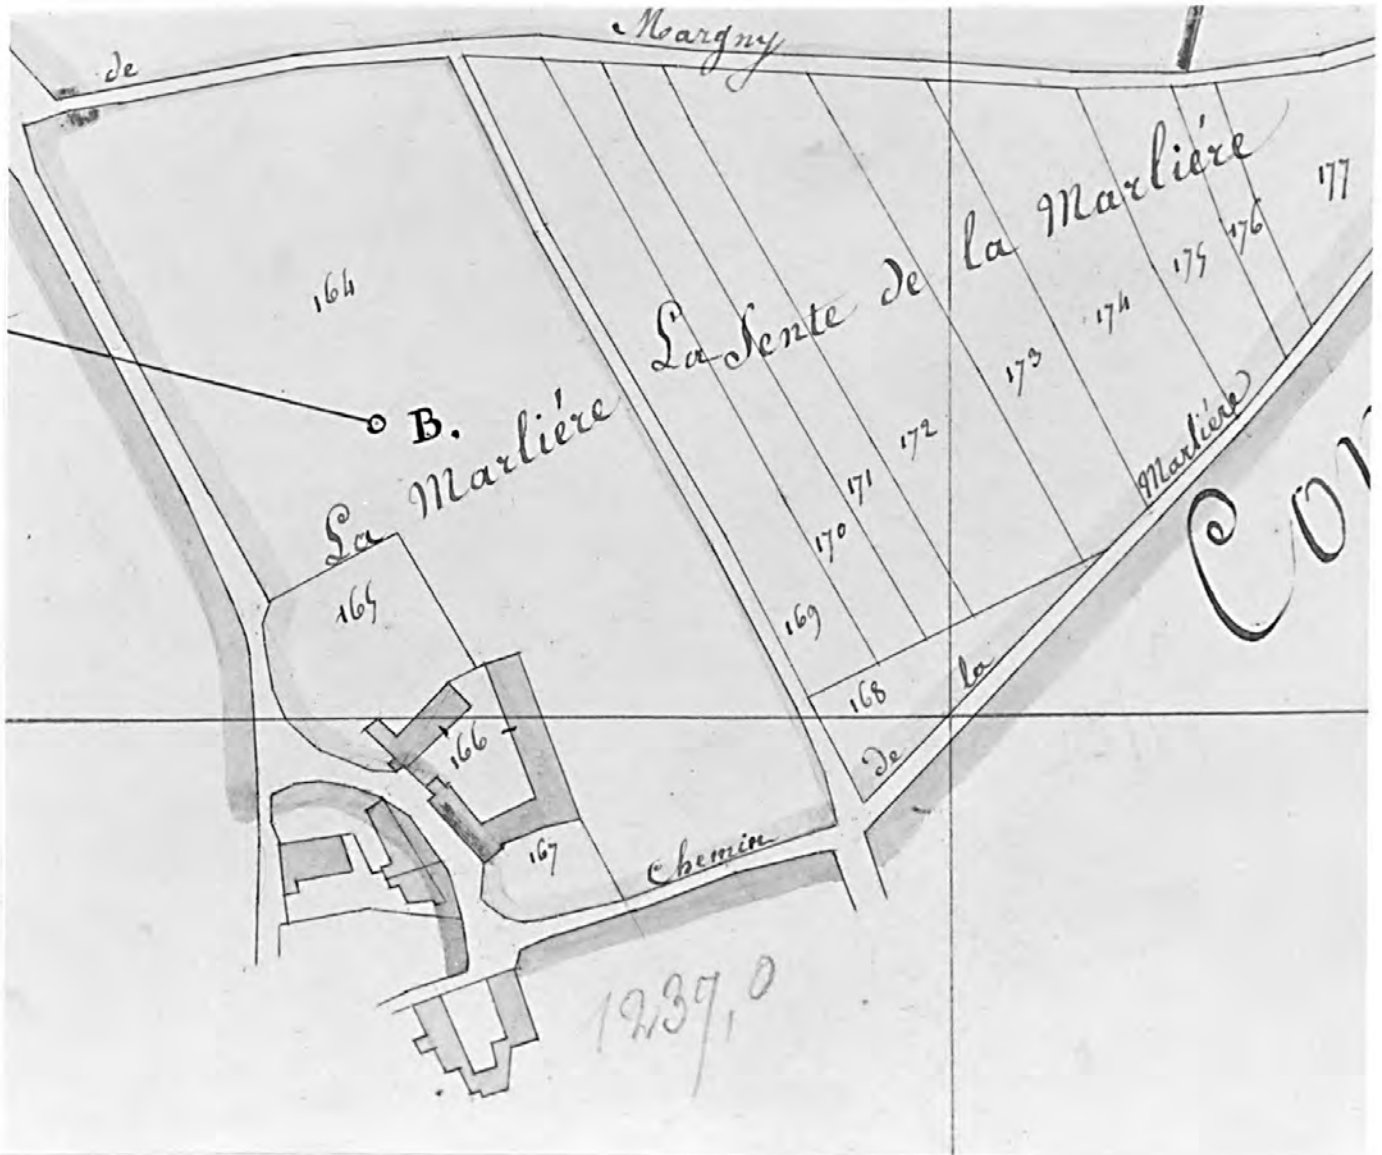 de Margny
164
B.
La Marliére
La Sente de la Marliére
165
166
167
168
169
170
171
172
173
174
175
176
177
Chemin de la Marliére
Con
1237,0